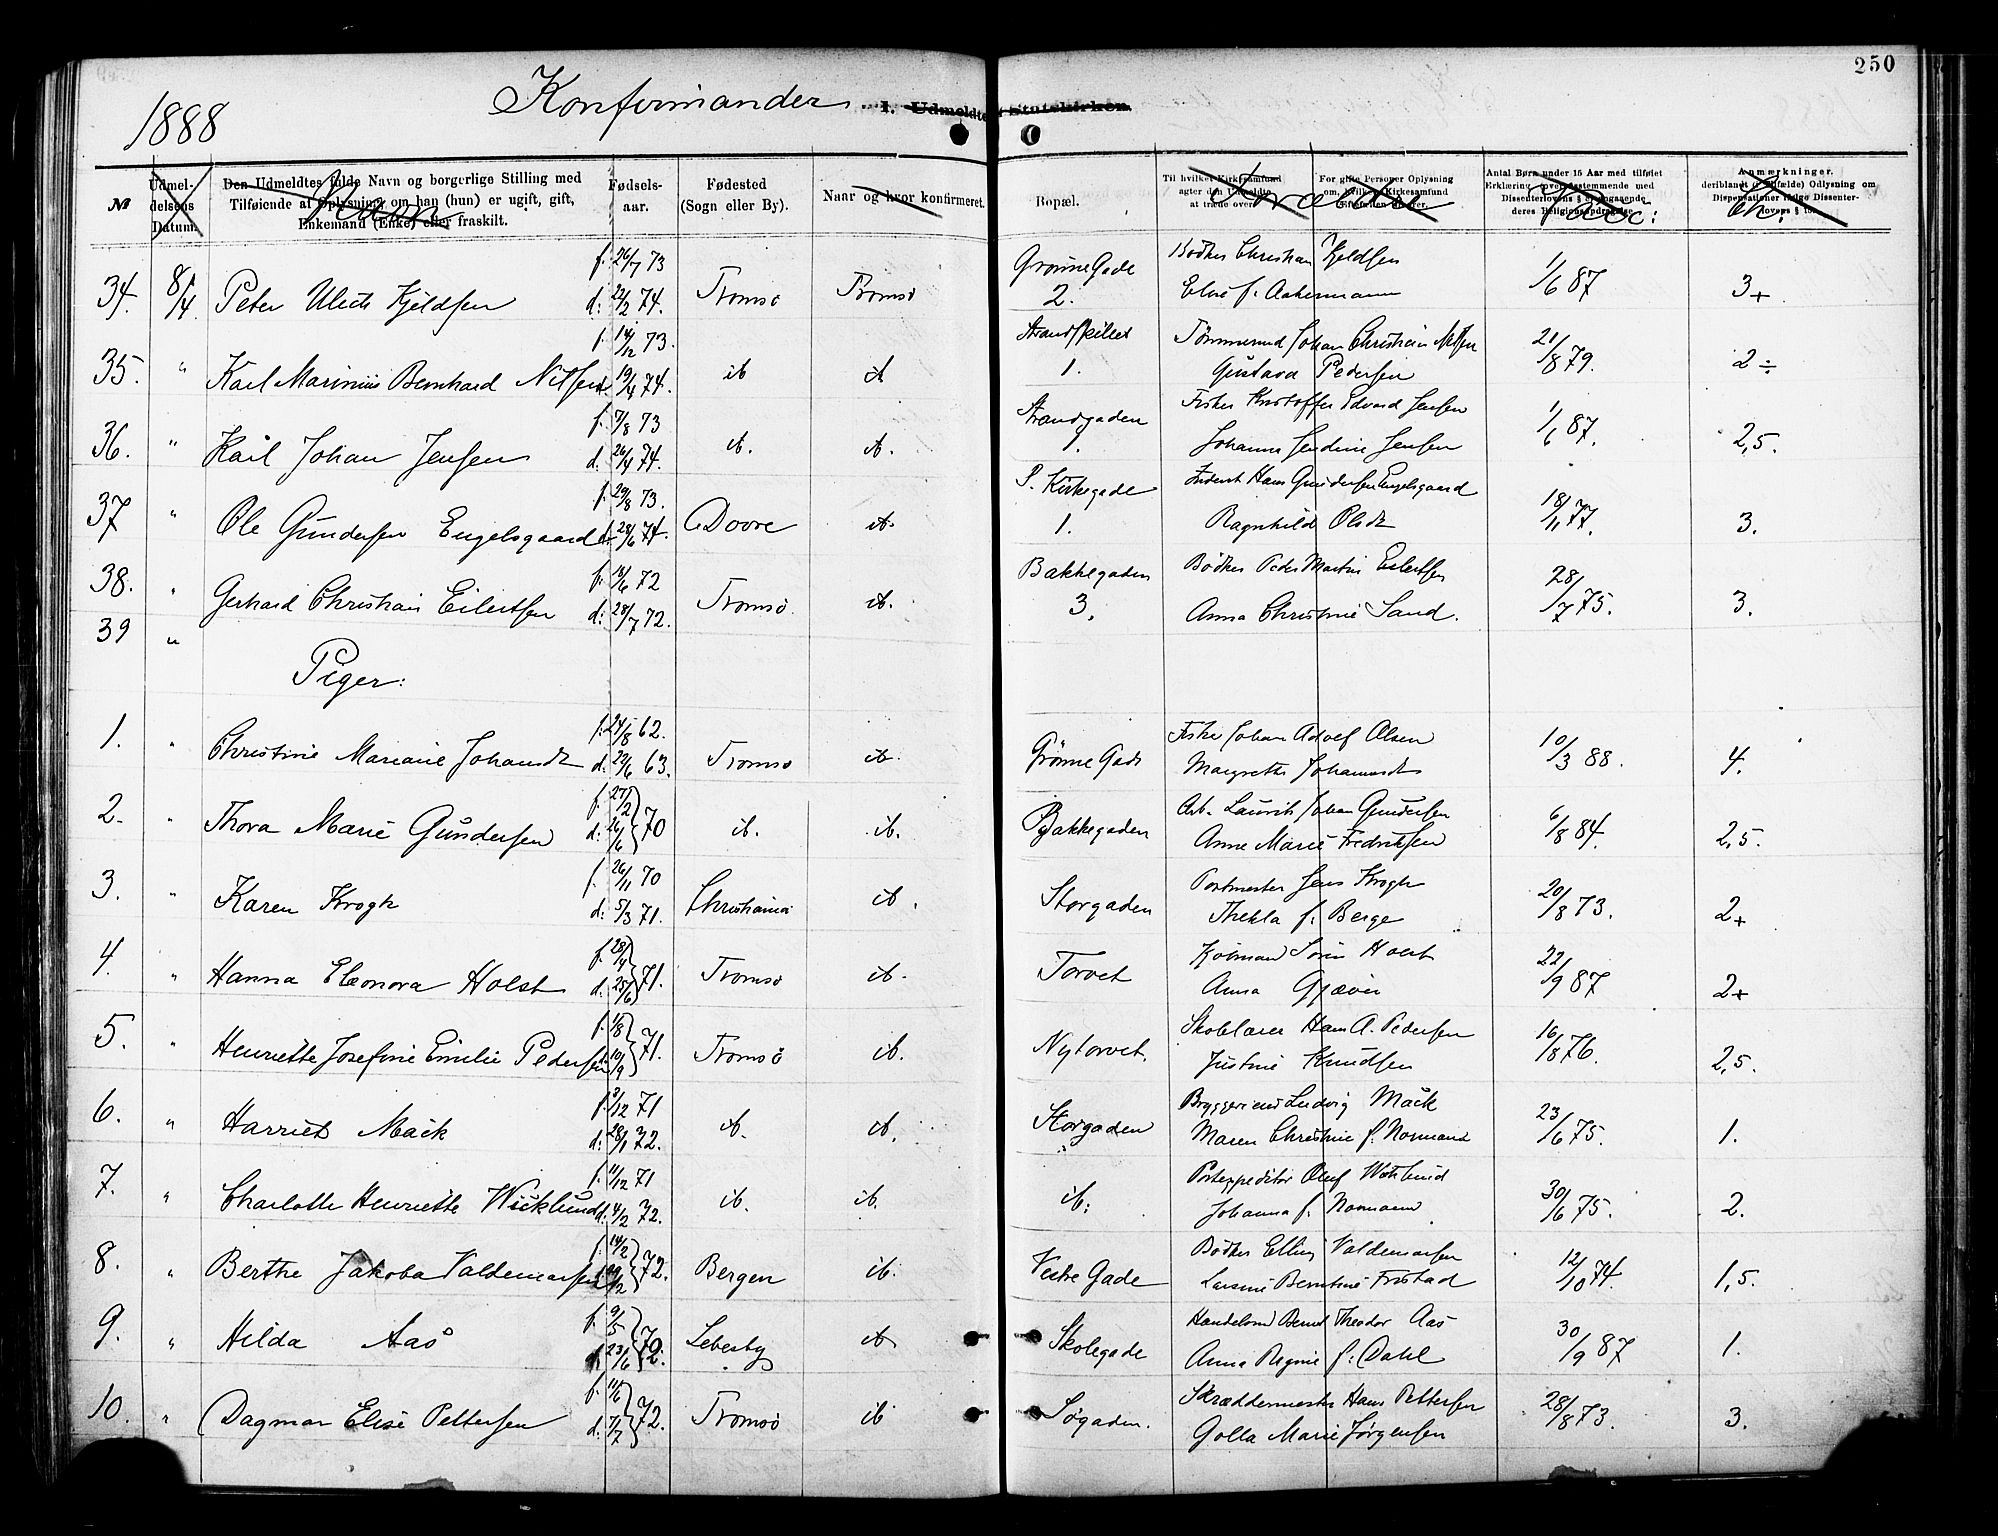 250
1888
Konfirmander
1. Udmeldte Statskirken
№
Udmel-delsens Datum.
Den Udmeldtes fulde Navn og borgerlige Stilling med Tilføiende af Oplysning om han (hun) er ugift, gift, Enkemand (Enke) eller fraskilt.
Navn
Fødsels-aar.
Fødested (Sogn eller By).
Naar og hvor konfirmeret.
Bopæl.
Til hvilket Kirkesamfund agter den Udmeldte at træde over.
For gifte Personer Oplysning om, hvilket Kirkesamfund
Forældre
Antal Børn under 15 Aar med tilføiet Erklæring overensstemmende med Dissenterlovens § angaaende deres Religionsopdragelse.
Vacc:
Anmærkninger. deriblandt (i Tilfælde) Oplysning om Dispensationer ifølge Dissenter-lovens §
34. 8/4 Peter Ulrik Kjeldsen f. 26/7 73 d: 22/2 74. Tromsø Tromsø Grønne Gade 2. Bødker Christian Kjeldsen f. Ackermann 1/6 87 3+
35. " Karl Marinius Bernhard Nilsen f. 14/12 73. d. 19/4 74. ib ib Strandskillet 1. Tømmermd Johan Christian Nilsen Gustava Pedersen 21/8 79. 2÷
36. " Karl Johan Jensen f. 7/8 73 d: 26/4 74. ib. ib. Strandgaden 1. Fisker Kristoffer Edvard Jensen Johanna Jensen 1/6 87. 2,5.
37 " Ole Gundersen Engelsgaard f. 29/8 73. d. 28/6 74. Dovre ib. Kirkegade 1. Hans Gundersen Engelsgaard Ragnhild Olsdt 18/11 77. 3.
38. " Gerhard Christian Eilertsen f. 16/6 72 d: 28/7 72. Tromsø. ib. Bakkegaden 3. Bødker Peder Martin Eilertsen Anna Christine Sand. 28/7 75. 3.
39 "
Piger:
1. " Christine Mariane Johansdt f. 24/8 62. d. 29/6 63. Tromsø ib. Grønne Gade Fisker Johan Adolf Olsen Margrethe Johannesdt 10/3 88. 4.
2. " Thora Marie Gundersen f. 27/2 d: 26/6 70 ib. ib. Bakkegaden Arb. Laurits Johan Gundersen Anne Marie Fredriksen 6/8 84. 2,5.
3. " Karen Krogh f. 26/11 70 d: 5/3 71. Christiania ib. Storgaden Postmester Jens Krogh Thekla f. Berge 20/8 73. 2+
4. " Hanna Eleonora Holst f. 28/4 d. 25/6 71. Tromsø ib. Torvet Kjøbmand Sören Holst Anna Gjæver 22/9 87 2+
5. " Henriette Josefine Emilie Pedersen f. 1/8 10/9 71. Tromsø ib. Nytorvet. Skolelærer Hans A. Pedersen Justine Knudsen 16/8 76. 2,5.
6. " Harriet Mack f. /12 71 d: 28/1 72. ib. ib. Storgaden Bryggerieier Ludvig Mack Maren Christine f. Normand 23/6 75. 1.
7. " Charlotte Henriette Wicklund f. 11/12 71 d: 4/2 72. ib. ib. ib: Postexpeditør Oluf Wicklund Johanna f. Normann 30/6 75. 2.
8. " Berthe Jakoba Valdemarsen f. 14/2 72. Bergen ib. Vestre Gade Bødker Elling Valdemarsen Larsine Berntine Fristad 12/10 74. 1,5.
9. " Hilda Aas f. 9/5 d. 23/6 72. Lebesby ib Skolegade Handelsmd Bernt Theodor Aas Anna Regine f: Dahl 30/9 87 1.
10. " Dagmar Elise Pettersen f. 11/6 d: 7/7 72. Tromsø ib Søgaden. Skræddermester Hans Pettersen Golla Marie Jørgensen 28/8 73. 3.